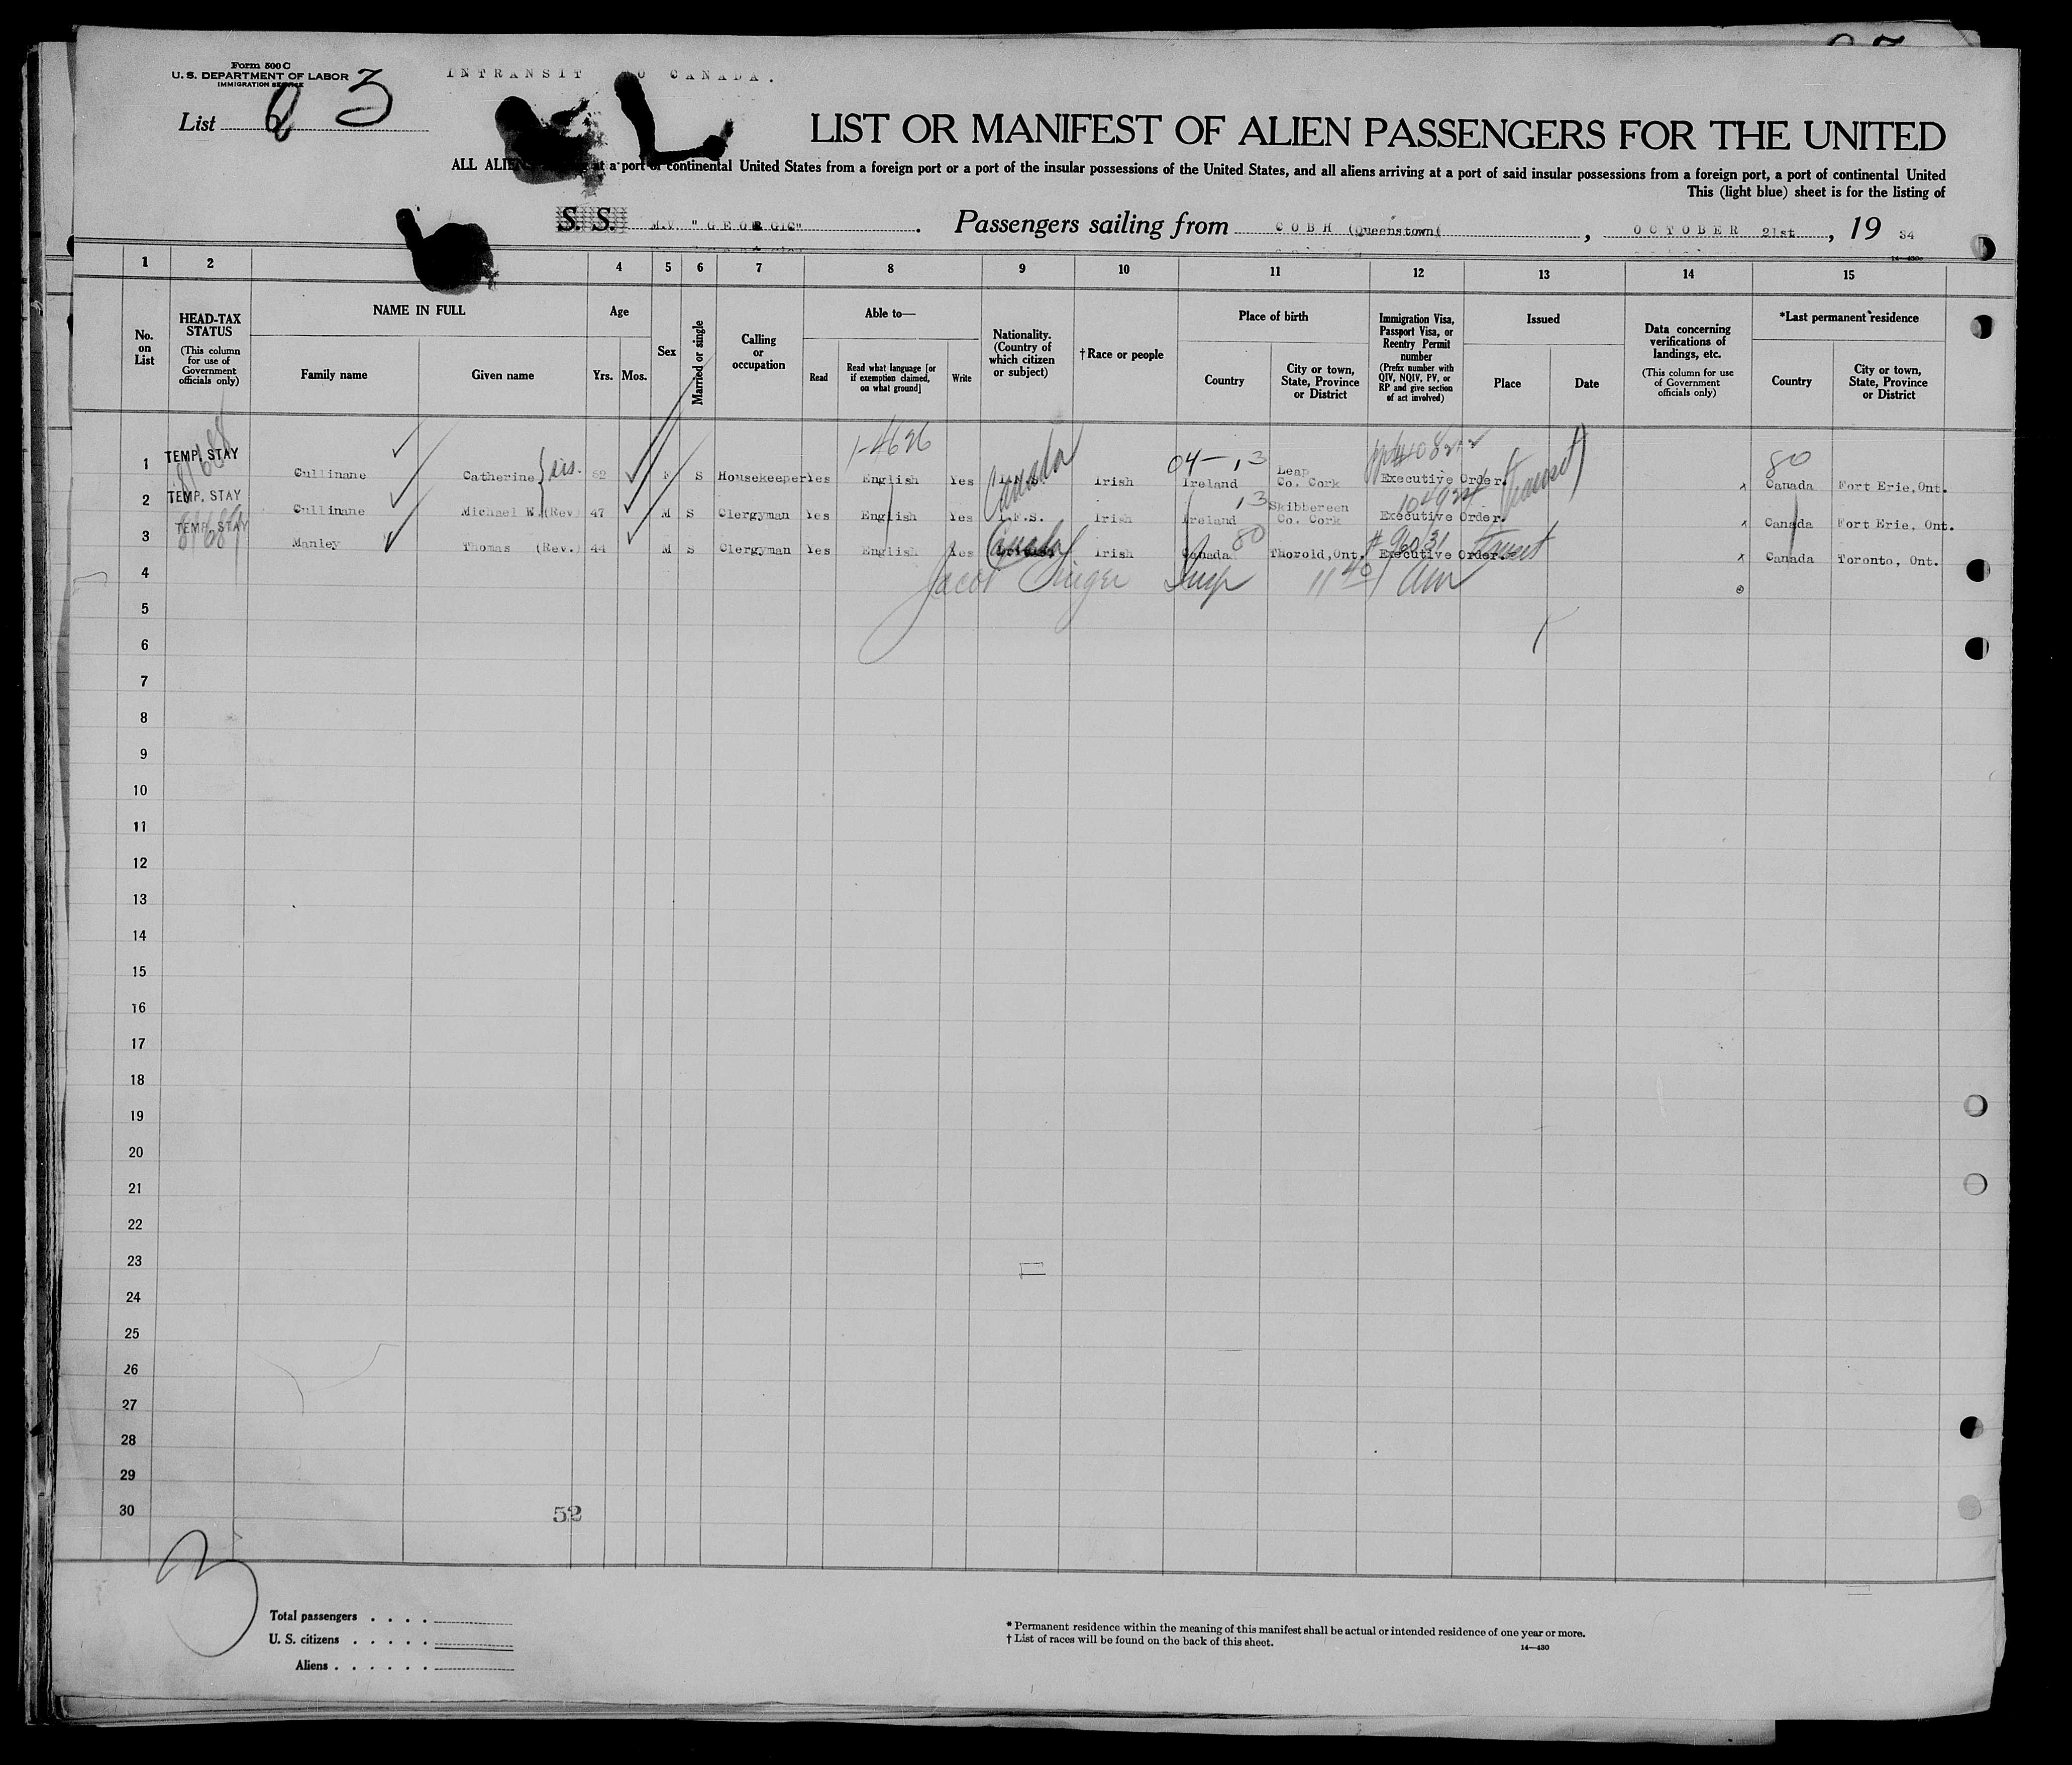 Form 500 C
U. S. DEPARTMENT OF LABOR
IMMIGRATION SERVICE
INTRANSIT TO CANADA.
List 3
LIST OR MANIFEST OF ALIEN PASSENGERS FOR THE UNITED
ALL ALIENS at a port of continental United States from a foreign port or a port of the insular possessions of the United States, and all aliens arriving at a port of said insular possessions from a foreign port, a port of continental United
This (light blue) sheet is for the listing of
S. S. M.V "GEORGIC". Passengers sailing from COBH (Queenstown(, OCTOBER 21st, 19 34
14—430c
1 2 4 5 6 7 8 9 10 11 12 13 14 15
No. on List
HEAD-TAX STATUS (This column for use of Government officials only)
NAME IN FULL
Family name Given name
Age
Yrs. Mos.
Sex
Married or single
Calling or occupation
Able to—
Read Read what language [or if exemption claimed, on what ground] Write
Nationality. (Country of which citizen or subject)
†Race or people
Place of birth
Country City or town, State, Province or District
Immigration Visa, Passport Visa, or Reentry Permit number (Prefix number with QIV, NQIV, PV, or RP and give section of act involved)
Issued
Place Date
Data concerning verifications of landings, etc. (This column for use of Government officials only)
*Last permanent residence
Country City or town, State, Province or District
1-4626 04- 13 80
1 TEMP. STAY Cullinane Catherine sis. 52 F S Housekeeper Yes English Yes Canada Irish Ireland Leap Co. Cork Executive Order. Transit x Canada Fort Erie, Ont.
2 TEMP. STAY Cullinane Michael W. (Rev) 47 M S Clergyman Yes English Yes I.F.S. Irish Ireland 13 Skibbereen Co. Cork Executive Order. x Canada Fort Erie, Ont.
3 TEMP. STAY Manley Thomas (Rev.) 44 M S Clergyman Yes English Yes Canada Irish Canada 80 Thorold, Ont. #96031 Executive Order. Transit x Canada Toronto, Ont.
4 Jacob Singer Insp 11 40 am
5
6
7
8
9
10
11
12
13
14
15
16
17
18
19
20
21
22
23
24
25
26
27
28
29
30
52
3
Total passengers . . . .
U. S. citizens . . . . .
Aliens . . . . . .
* Permanent residence within the meaning of this manifest shall be actual or intended residence of one year or more.
† List of races will be found on the back of this sheet.
14—430